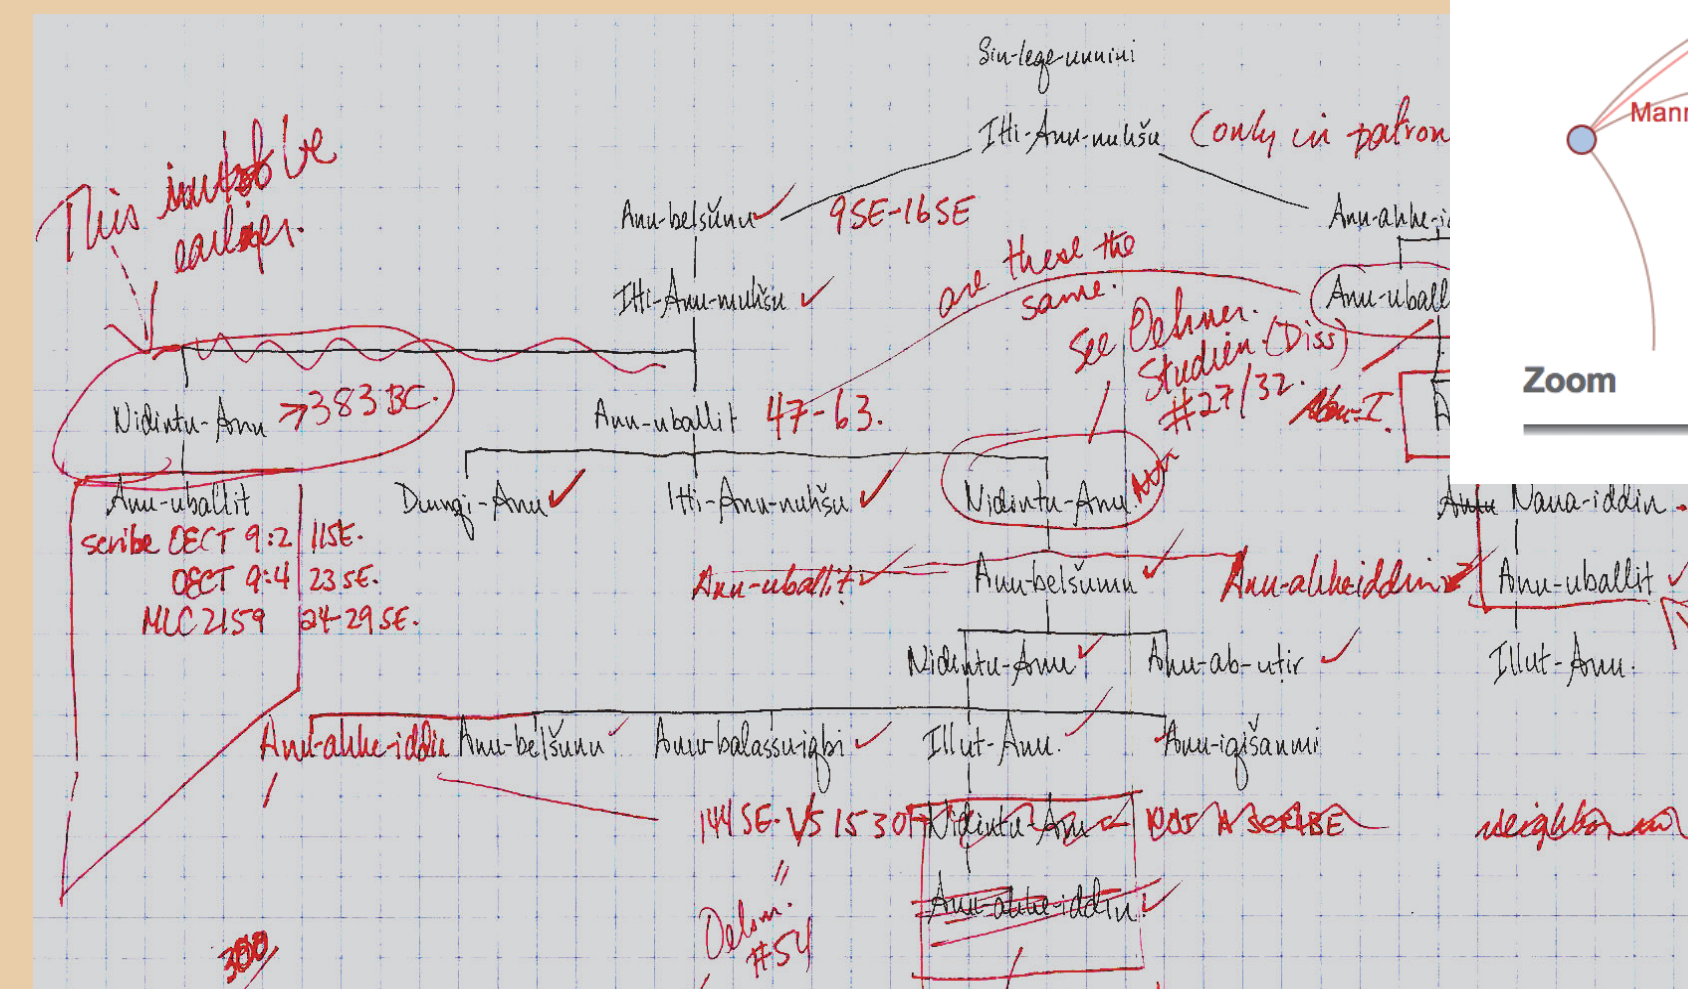 Sin-leqe-unnini
Itti-Anu-nuhšu (only in patron
Mann
This must be
earlier.
Anu-belšunu 9SE-16SE
Anu-ahhe-id
are these the
same.
Itti-Anu-nuhšu
Anu-uball
See Oelsner.
Studien (Diss)
#27/32.
Zoom
Nidintu-Anu →383 BC.
Anu-uballit 47-63.
Anu-uballit
Dumqi-Anu
Itti-Anu-nuhšu
Nidintu-Anu
Nana-iddin
scribe OECT 9:2 11SE.
OECT 9:4 23SE.
MLC 2159 24-29SE.
Anu-uballit
Anu-belšunu
Anu-ahhe-iddin
Anu-uballit
Nidintu-Anu
Anu-ab-uṭir
Illut-Anu.
Anu-ahhe-iddin
Anu-belšunu
Anu-balassu-iqbi
Illut-Anu.
Anu-iqišanni
144 SE. VS 15 30
Nidintu-Anu
NOT A SCRIBE
neighbor
Anu-ahhe-iddin
"
Oelsn.
#54
300